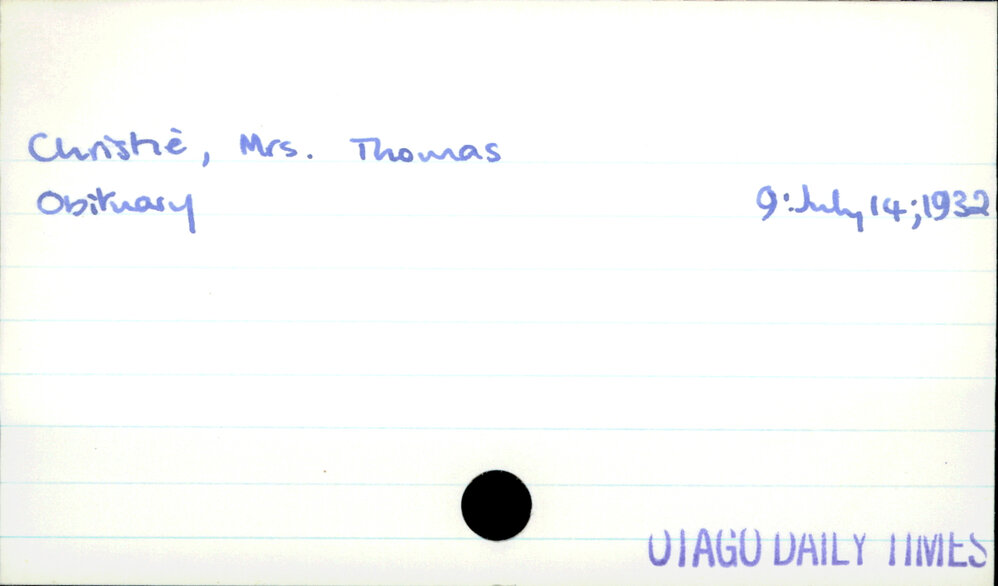 Christie, Mrs. Thomas
Obituary 9:July 14;1932
OTAGO DAILY TIMES